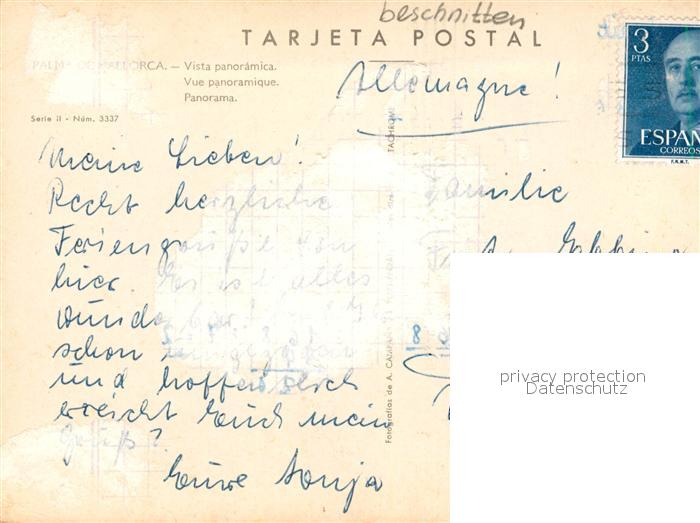 beschnitten
TARJETA POSTAL
PALMA DE MALLORCA. — Vista panorámica.
Vue panoramique.
Panorama.
Serie II - Núm. 3337
Allemagne!
3
PTAS
ESPAÑ
CORREOS
F.N.M.T.
Meine Lieben!
Recht herzliche
Feriengrüße von
hier. Es ist alles
wunderbar!
schon
und hoffentlich
erreicht Euch mein
Gruß?
Eure Sonja
Familie
8
Fotografías de A. CAMPAÑÁ
privacy protection
Datenschutz